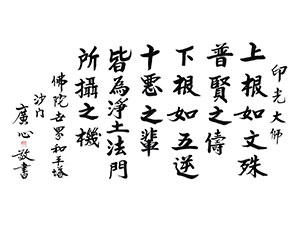 印光大师
上根如文殊
普賢之儔
下根如五逆
十恶之輩
皆為淨土法門
所攝之機
佛陀世界和平塔
沙门
廣心敬書